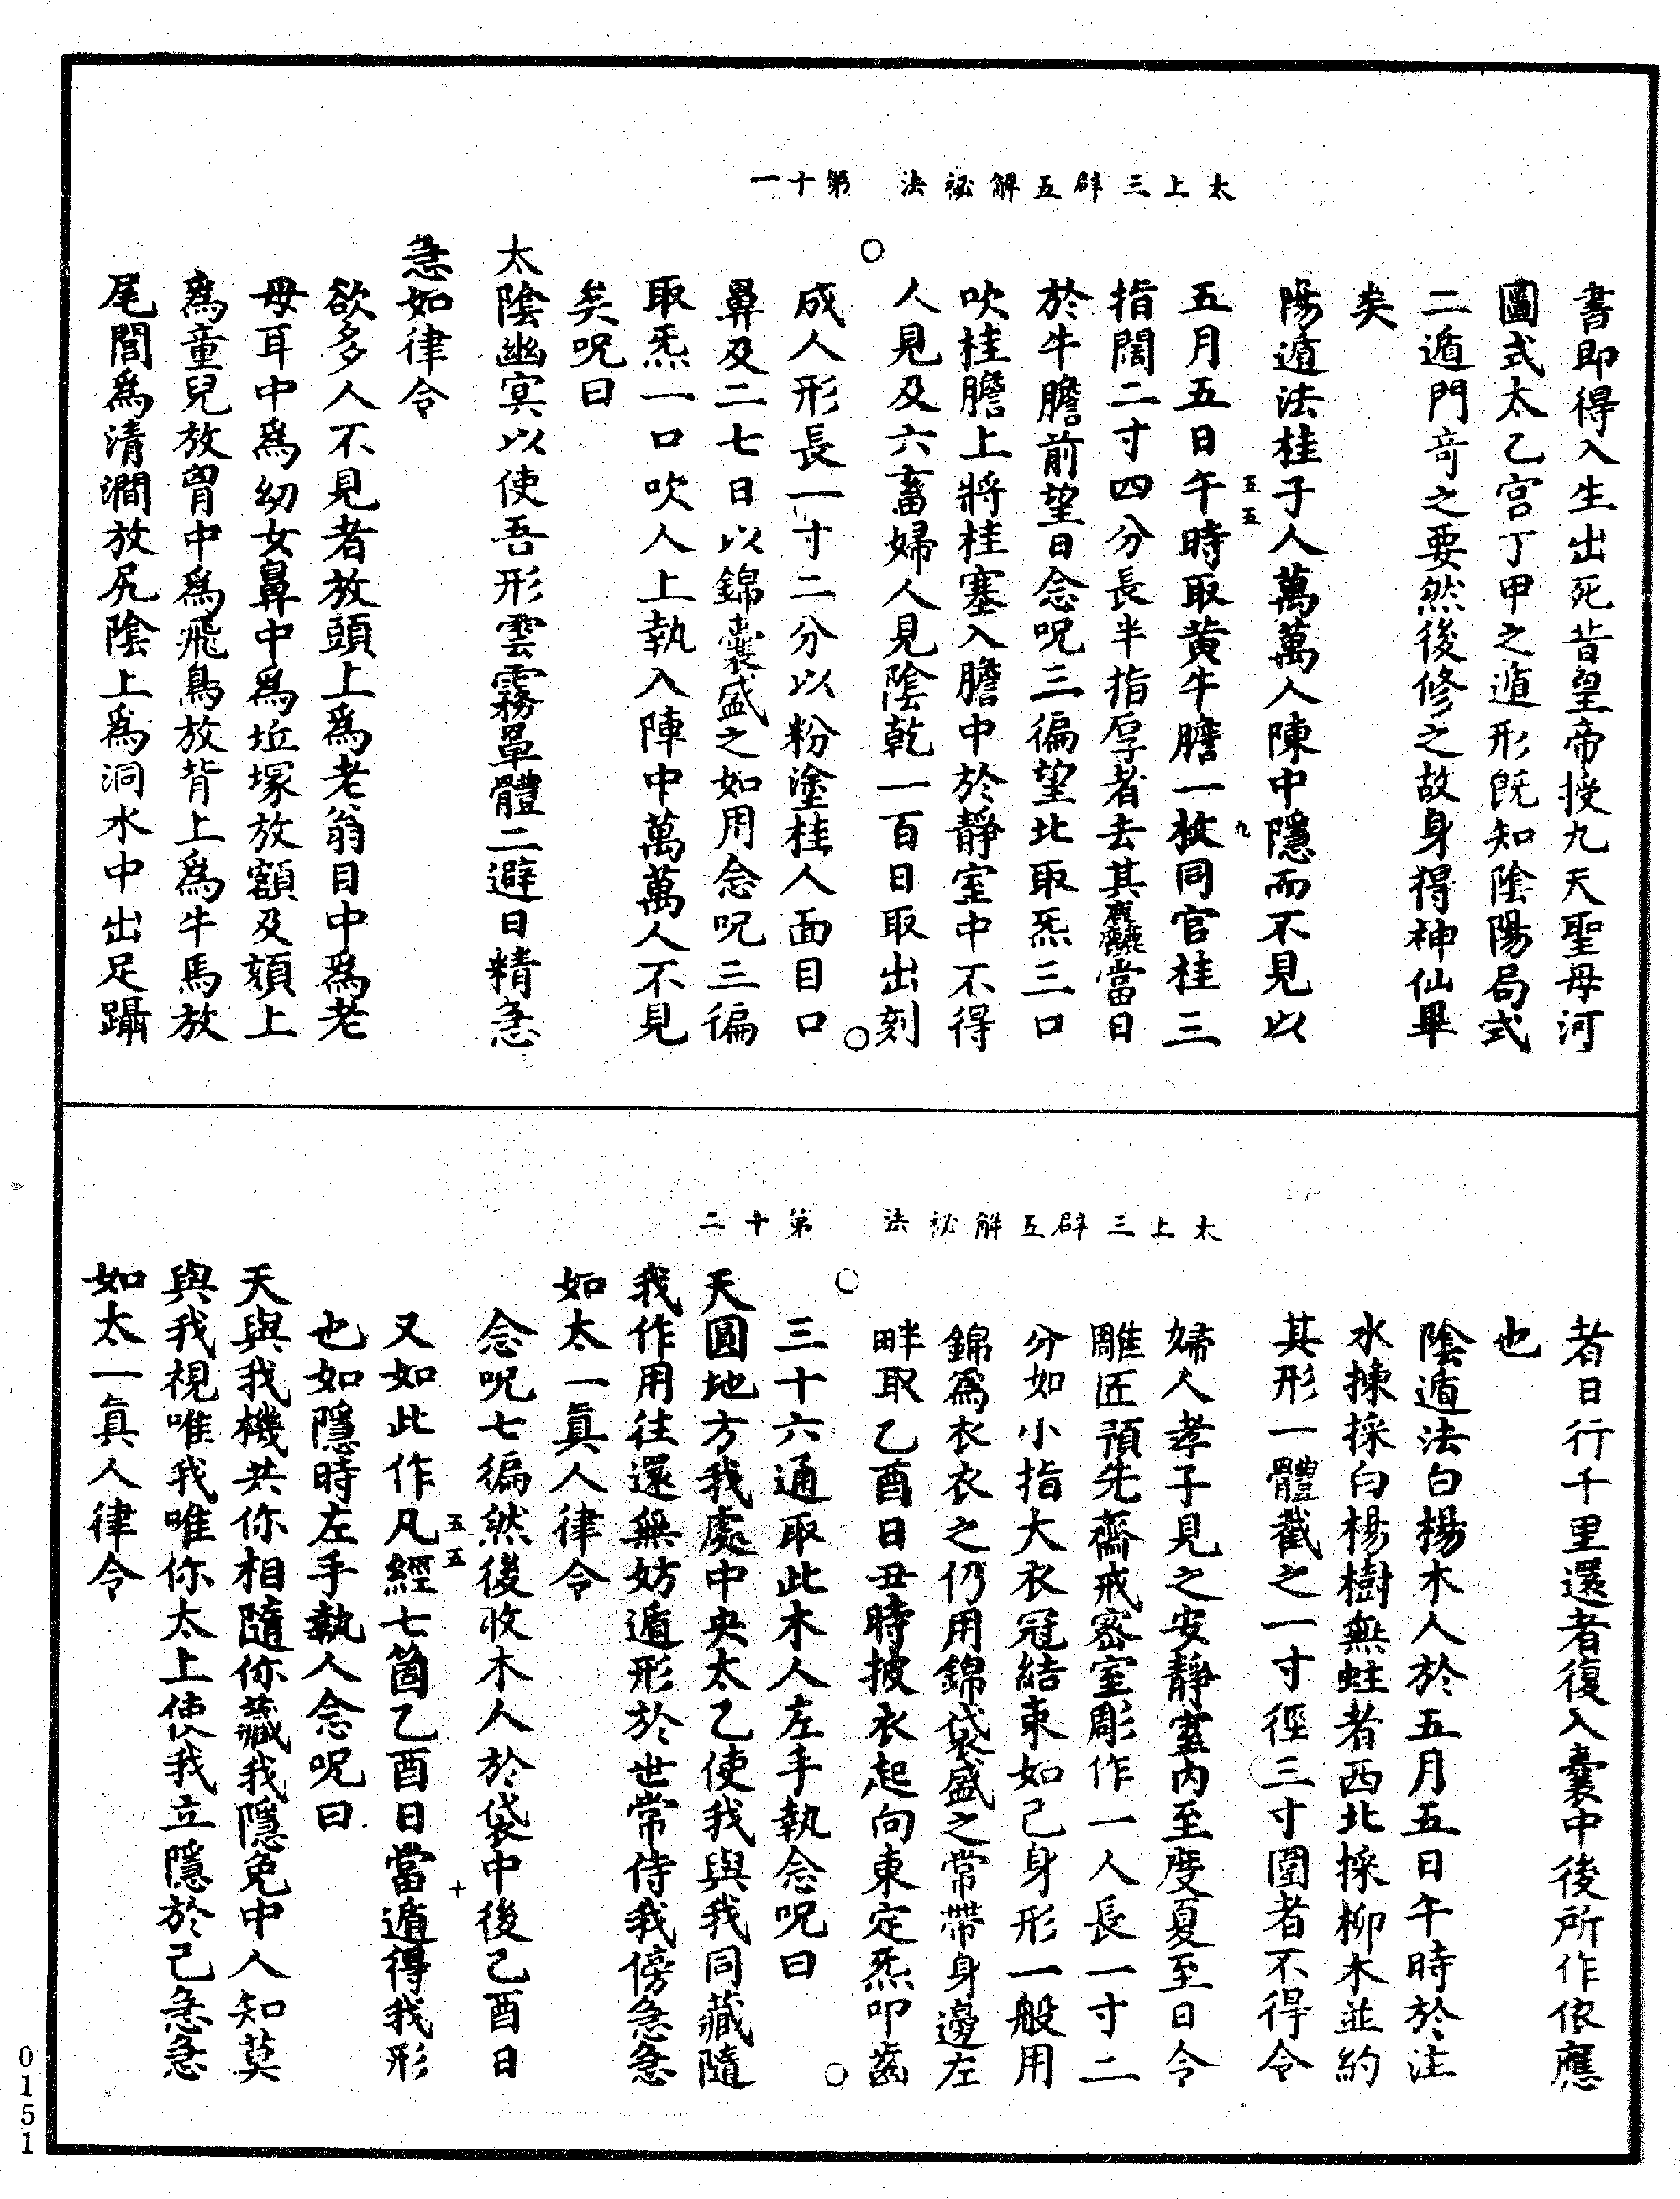 太上三辟五解祕法　第十一
書即得入生出死昔皇帝授九天聖母河
圖式太乙宮丁甲之遁形旣知陰陽局式
二遁門竒之要然後修之故身得神仙畢
矣
陽遁法桂子人萬萬人陳中隱而不見以
五五
九
五月五日午時取黄牛膽一枚同官桂三
指闊二寸四分長半指厚者去其麄麤當日
於牛膽前望日念呪三徧望北取炁三口
吹桂膽上將桂塞入膽中於靜室中不得
人見及六畜婦人見陰乾一百日取出刻
成人形長一寸二分以粉塗桂人面目口
鼻及二七日以錦囊盛之如用念呪三徧
取炁一口吹人上執入陣中萬萬人不見
矣呪曰
太陰幽冥以使吾形雲霧罩體二避日精急
急如律令
欲多人不見者放頭上爲老翁目中爲老
母耳中爲幼女鼻中爲坵塚放額及頦上
爲童兒放胷中爲飛鳥放背上爲牛馬放
尾閭爲清澗放尻陰上爲洞水中出足躡
太上三辟五解祕法　第十二
者日行千里還者復入囊中後所作依應
也
陰遁法白楊木人於五月五日午時於注
水揀採白楊樹無蛀者西北採柳木並約
其形一體截之一寸徑三寸圍者不得令
婦人孝子見之安靜室内至度夏至日令
雕匠預先齋戒密室彫作一人長一寸二
分如小指大衣冠結束如己身形一般用
錦爲衣衣之仍用錦袋盛之常帶身邊左
畔取乙酉日丑時披衣起向東定炁叩齒
三十六通取此木人左手執念呪曰
天圓地方我處中央太乙使我與我同藏隨
我作用往還無妨遁形於世常侍我傍急急
如太一眞人律令
念呪七徧然後收木人於袋中後乙酉日
五五
十
又如此作凡經七箇乙酉日當遁得我形
也如隱時左手執人念呪曰
天與我機共你相隨你藏我隱免中人知莫
與我視唯我唯你太上使我立隱於己急急
如太一眞人律令
0151